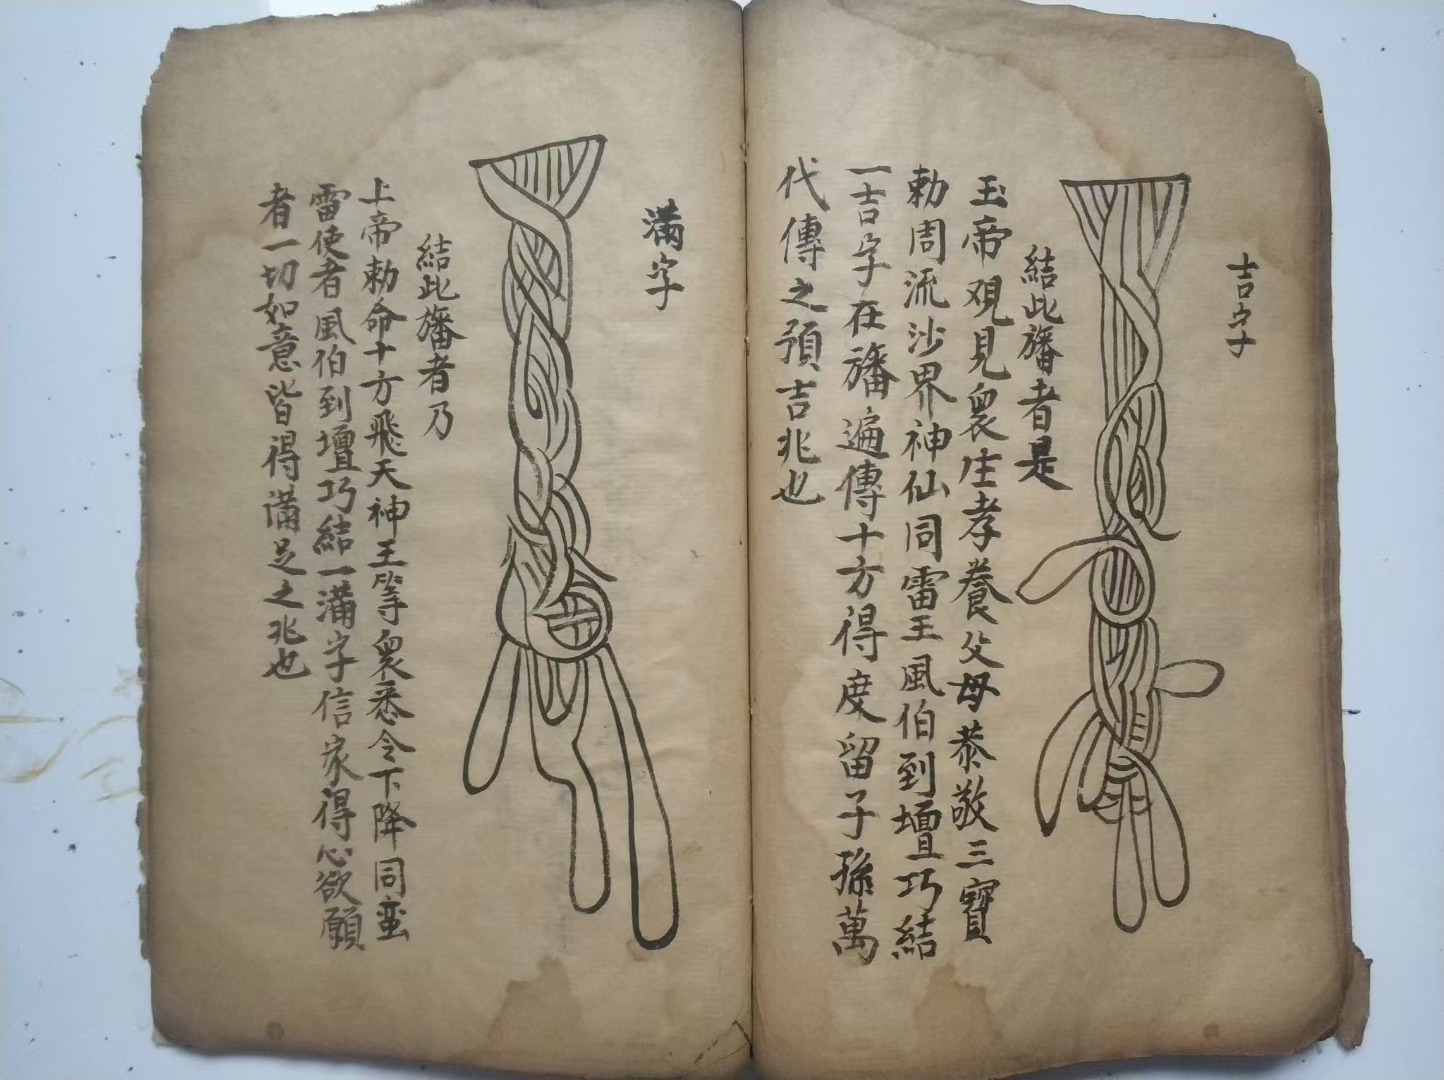 吉字
結此旛者是
玉帝觀見眾生孝養父母恭敬三寶
勅周流沙界神仙同雷王風伯到壇巧結
一吉字在旛遍傳十方得度留子孫萬
代傳之預吉兆也
滿字
結此旛者乃
上帝勅命十方飛天神王等眾悉令下降同蛮
雷使者風伯到壇巧結一滿字信家得心欲願
者一切如意皆得滿足之兆也